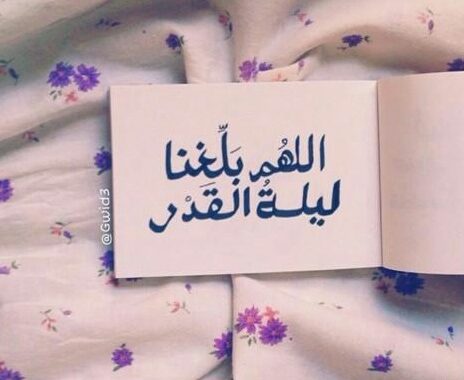 اللهُم بَلِّغنا
ليلـةُ القَدْر
@Gwid3